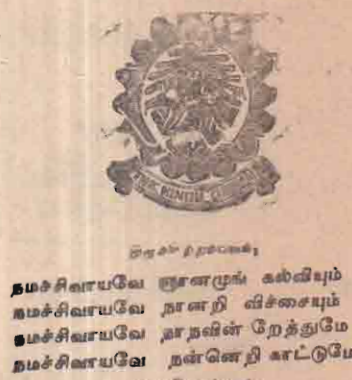 திருச்சிற்றம்பலம்
நமச்சிவாயவே ஞானமுங் கல்வியும்
நமச்சிவாயவே நானறி விச்சையும்
நமச்சிவாயவே நாநவின் றேத்துமே
நமச்சிவாயவே நன்னெறி காட்டுமே